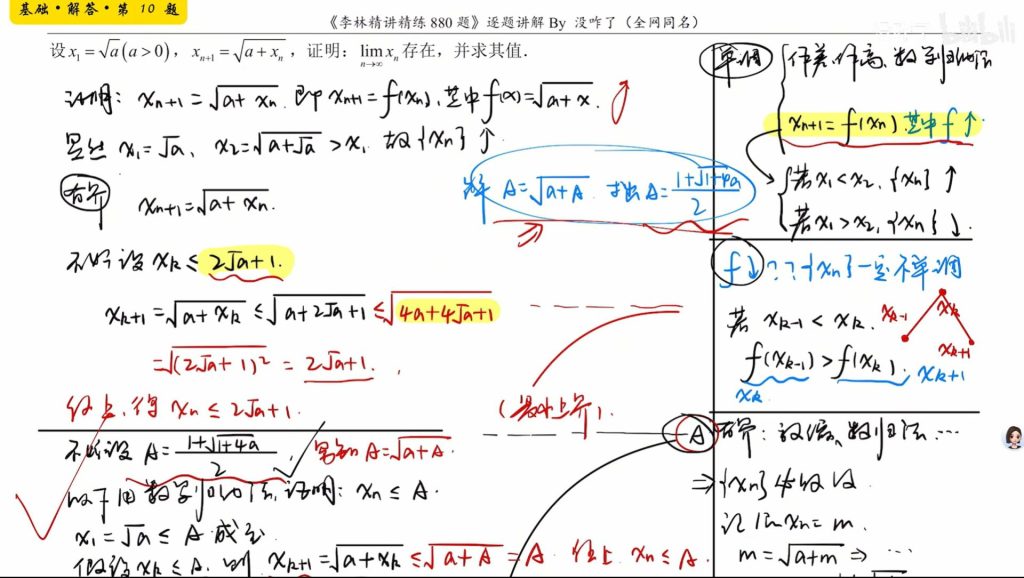 基础·解答·第 10 题
《李林精讲精练880题》逐题讲解By 没咋了（全网同名）
设x₁=√a(a>0)，xₙ₊₁=√(a+xₙ)，证明：lim_{n→∞} xₙ存在，并求其值.
证明：xₙ₊₁=√(a+xₙ). 即 xₙ₊₁=f(xₙ), 其中f(x)=√(a+x).
显然 x₁=√a, x₂=√(a+√a) > x₁ 故{xₙ}↑.
有界
xₙ₊₁=√(a+xₙ).
不妨设 x_k ≤ 2√a+1.
x_{k+1}=√(a+x_k) ≤ √(a+2√a+1) ≤ √(4a+4√a+1)
=√((2√a+1)²) = 2√a+1.
综上, 得 xₙ ≤ 2√a+1.
解 A=√(a+A). 求出A=(1+√(1+4a))/2
(最小上界).
A
不妨设 A=(1+√(1+4a))/2, 易知A=√(a+A).
以下用数学归纳法, 证明: xₙ ≤ A.
x₁=√a ≤ A 成立
假设 x_k ≤ A. 则 x_{k+1}=√(a+x_k) ≤ √(a+A) = A. 综上 xₙ ≤ A.
单调
作差、作商、数学归纳法
xₙ₊₁=f(xₙ) 其中f↑
若x₁<x₂, {xₙ}↑
若x₁>x₂, {xₙ}↓.
f↓??{xₙ}一定不单调
若 x_{k-1} < x_k.
f(x_{k-1}) > f(x_k).
x_k x_{k+1}
x_{k-1} x_k
x_{k+1}
有界: 放缩、数归法…
⇒{xₙ}收敛
记limxₙ=m.
m=√(a+m) ⇒ …